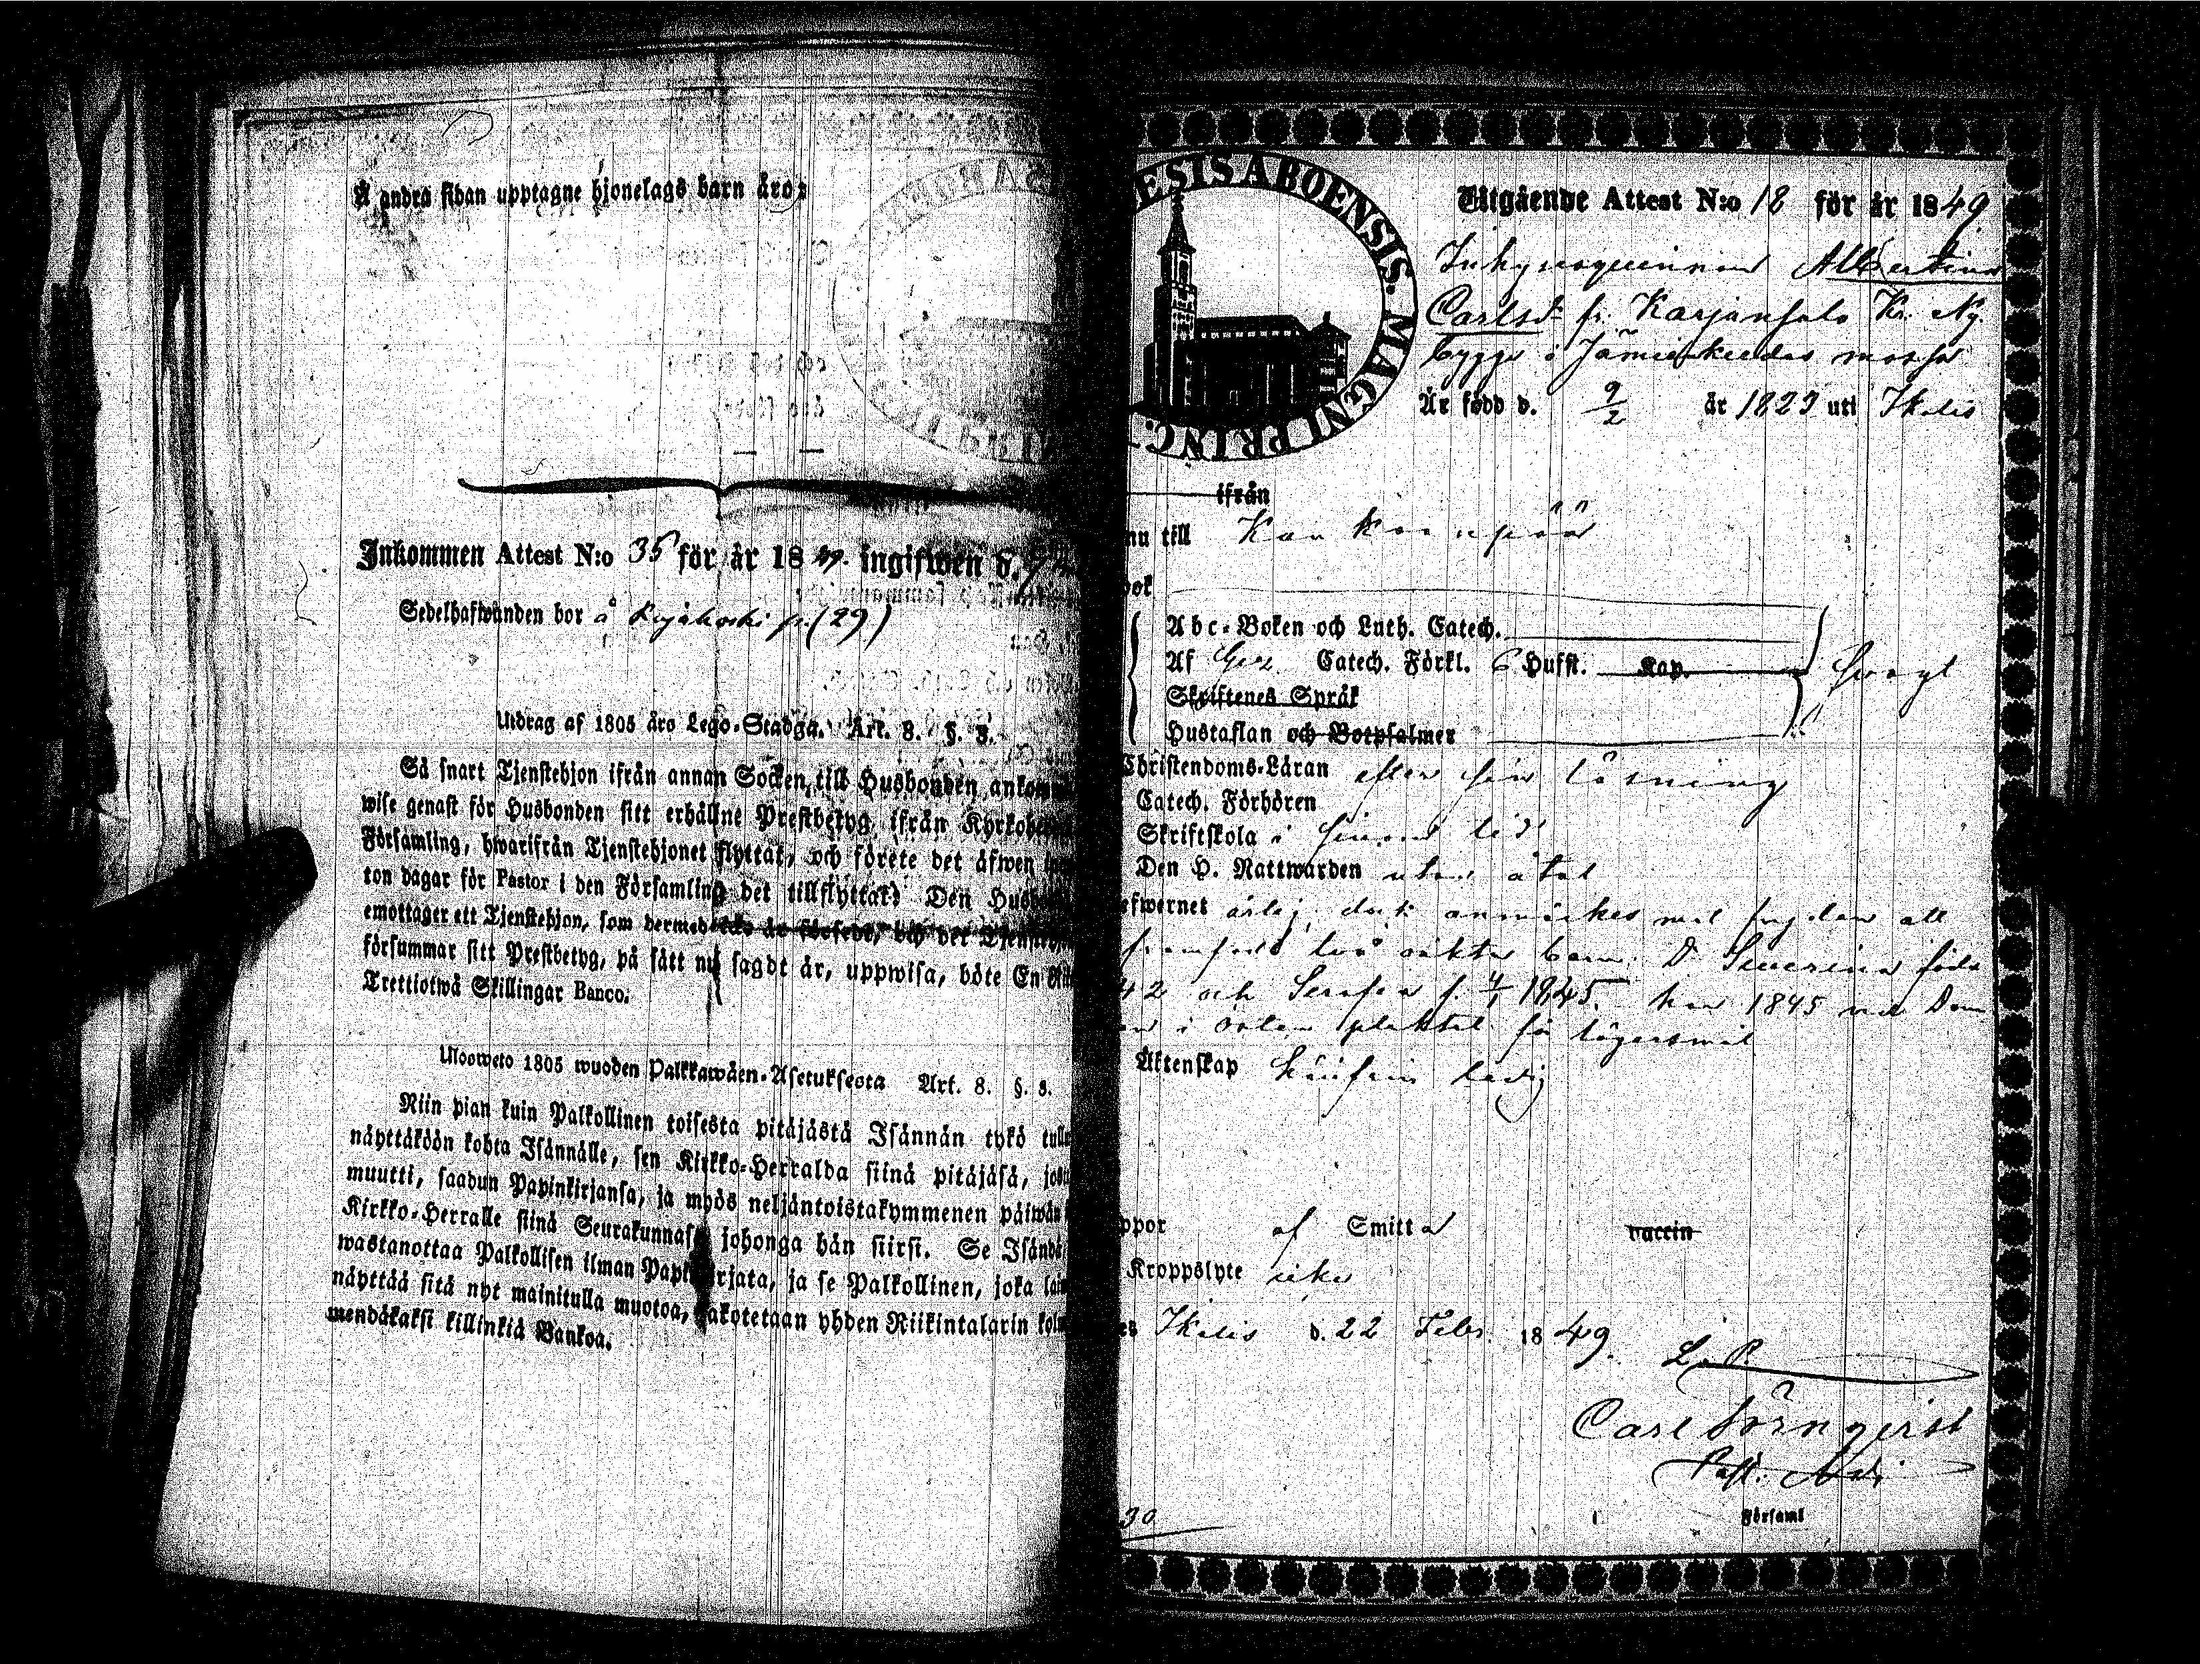 Å andra sidan upptagne hjonelags barn äro:
Inkommen Attest N:o 35 för år 1849. ingifwen d.
Sedelhafwanden bor å (29)
Utdrag af 1805 års Lego-Stadga. Art. 8. §. 3.
Så snart Tjenstehjon ifrån annan Socken, till Husbonden ankom
wise genast för Husbonden sitt erhållne Prestbetyg, ifrån Kyrko
Församling, hwarifrån Tjenstehjonet flyttat, och förete det äfwen
ton dagar för Pastor i den Församling det tillflyttat. Den Husb
emottager ett Tjenstehjon, som dermed icke är försedt, och det Tjenste
försummar sitt Prestbetyg, på sätt nu sagdt är, uppwisa, böte En
Trettiotwå Skillingar Banco.
Uloswето 1805 wuoden Palkkawäen-Asetuksesta Art. 8. §. 3.
Niin pian kuin Palkollinen toisesta pitäjästä Isännän tykö tull
näyttäköön kohta Isännälle, sen Kirkko-Herralda siinä pitäjäsä, jo
muutti, saadun Papinkirjansa, ja myös neljäntoistakymmenen päiwän
Kirkko-Herralle siinä Seurakunnasa johonga hän siirsi. Se Isändä
wastanottaa Palkollisen ilman Papinkirjata, ja se Palkollinen, joka lai
näyttää sitä nyt mainitulla muotoa, sakotetaan yhden Riikintalarin kol
mendäkaksi killinkiä Bankoa.
ESIS ABOENSIS. MAGNI PRINC.
Utgående Attest N:o 18 för år 1849
Inhysesqvinnan Albertina
Carlsd: fr. Karjansalo Kr. Ny
bygge i Jämienkeidas
Är född d. 9/2 år 1823 uti Ikalis
ifrån
nu till Kankaanpää
ok
Abc-Boken och Luth. Catech.
Af Catech. Förkl. 6 Hufst. Kap.
Skriftenes Språk
Hustaflan och Botpsalmer
Christendoms-Läran efter sin läsning
Catech. Förhören
Skriftskola i sinom tid
Den H. Nattwarden utan åtal
efwernet ärlig, dock anmärkes att
framfödt två oäkta barn D. Severina född
42 och Serafia f. 4/1 1845 har 1845 vid Dom
i orten pliktat för lägersmål
Äktenskap hinfrin ledig
ppor af Smitta vaccin
Kroppslyte icke
es Ikalis d. 22 Febr. 1849.
L. P.
Carl Törnqvist
Past. Adj
Församl
30